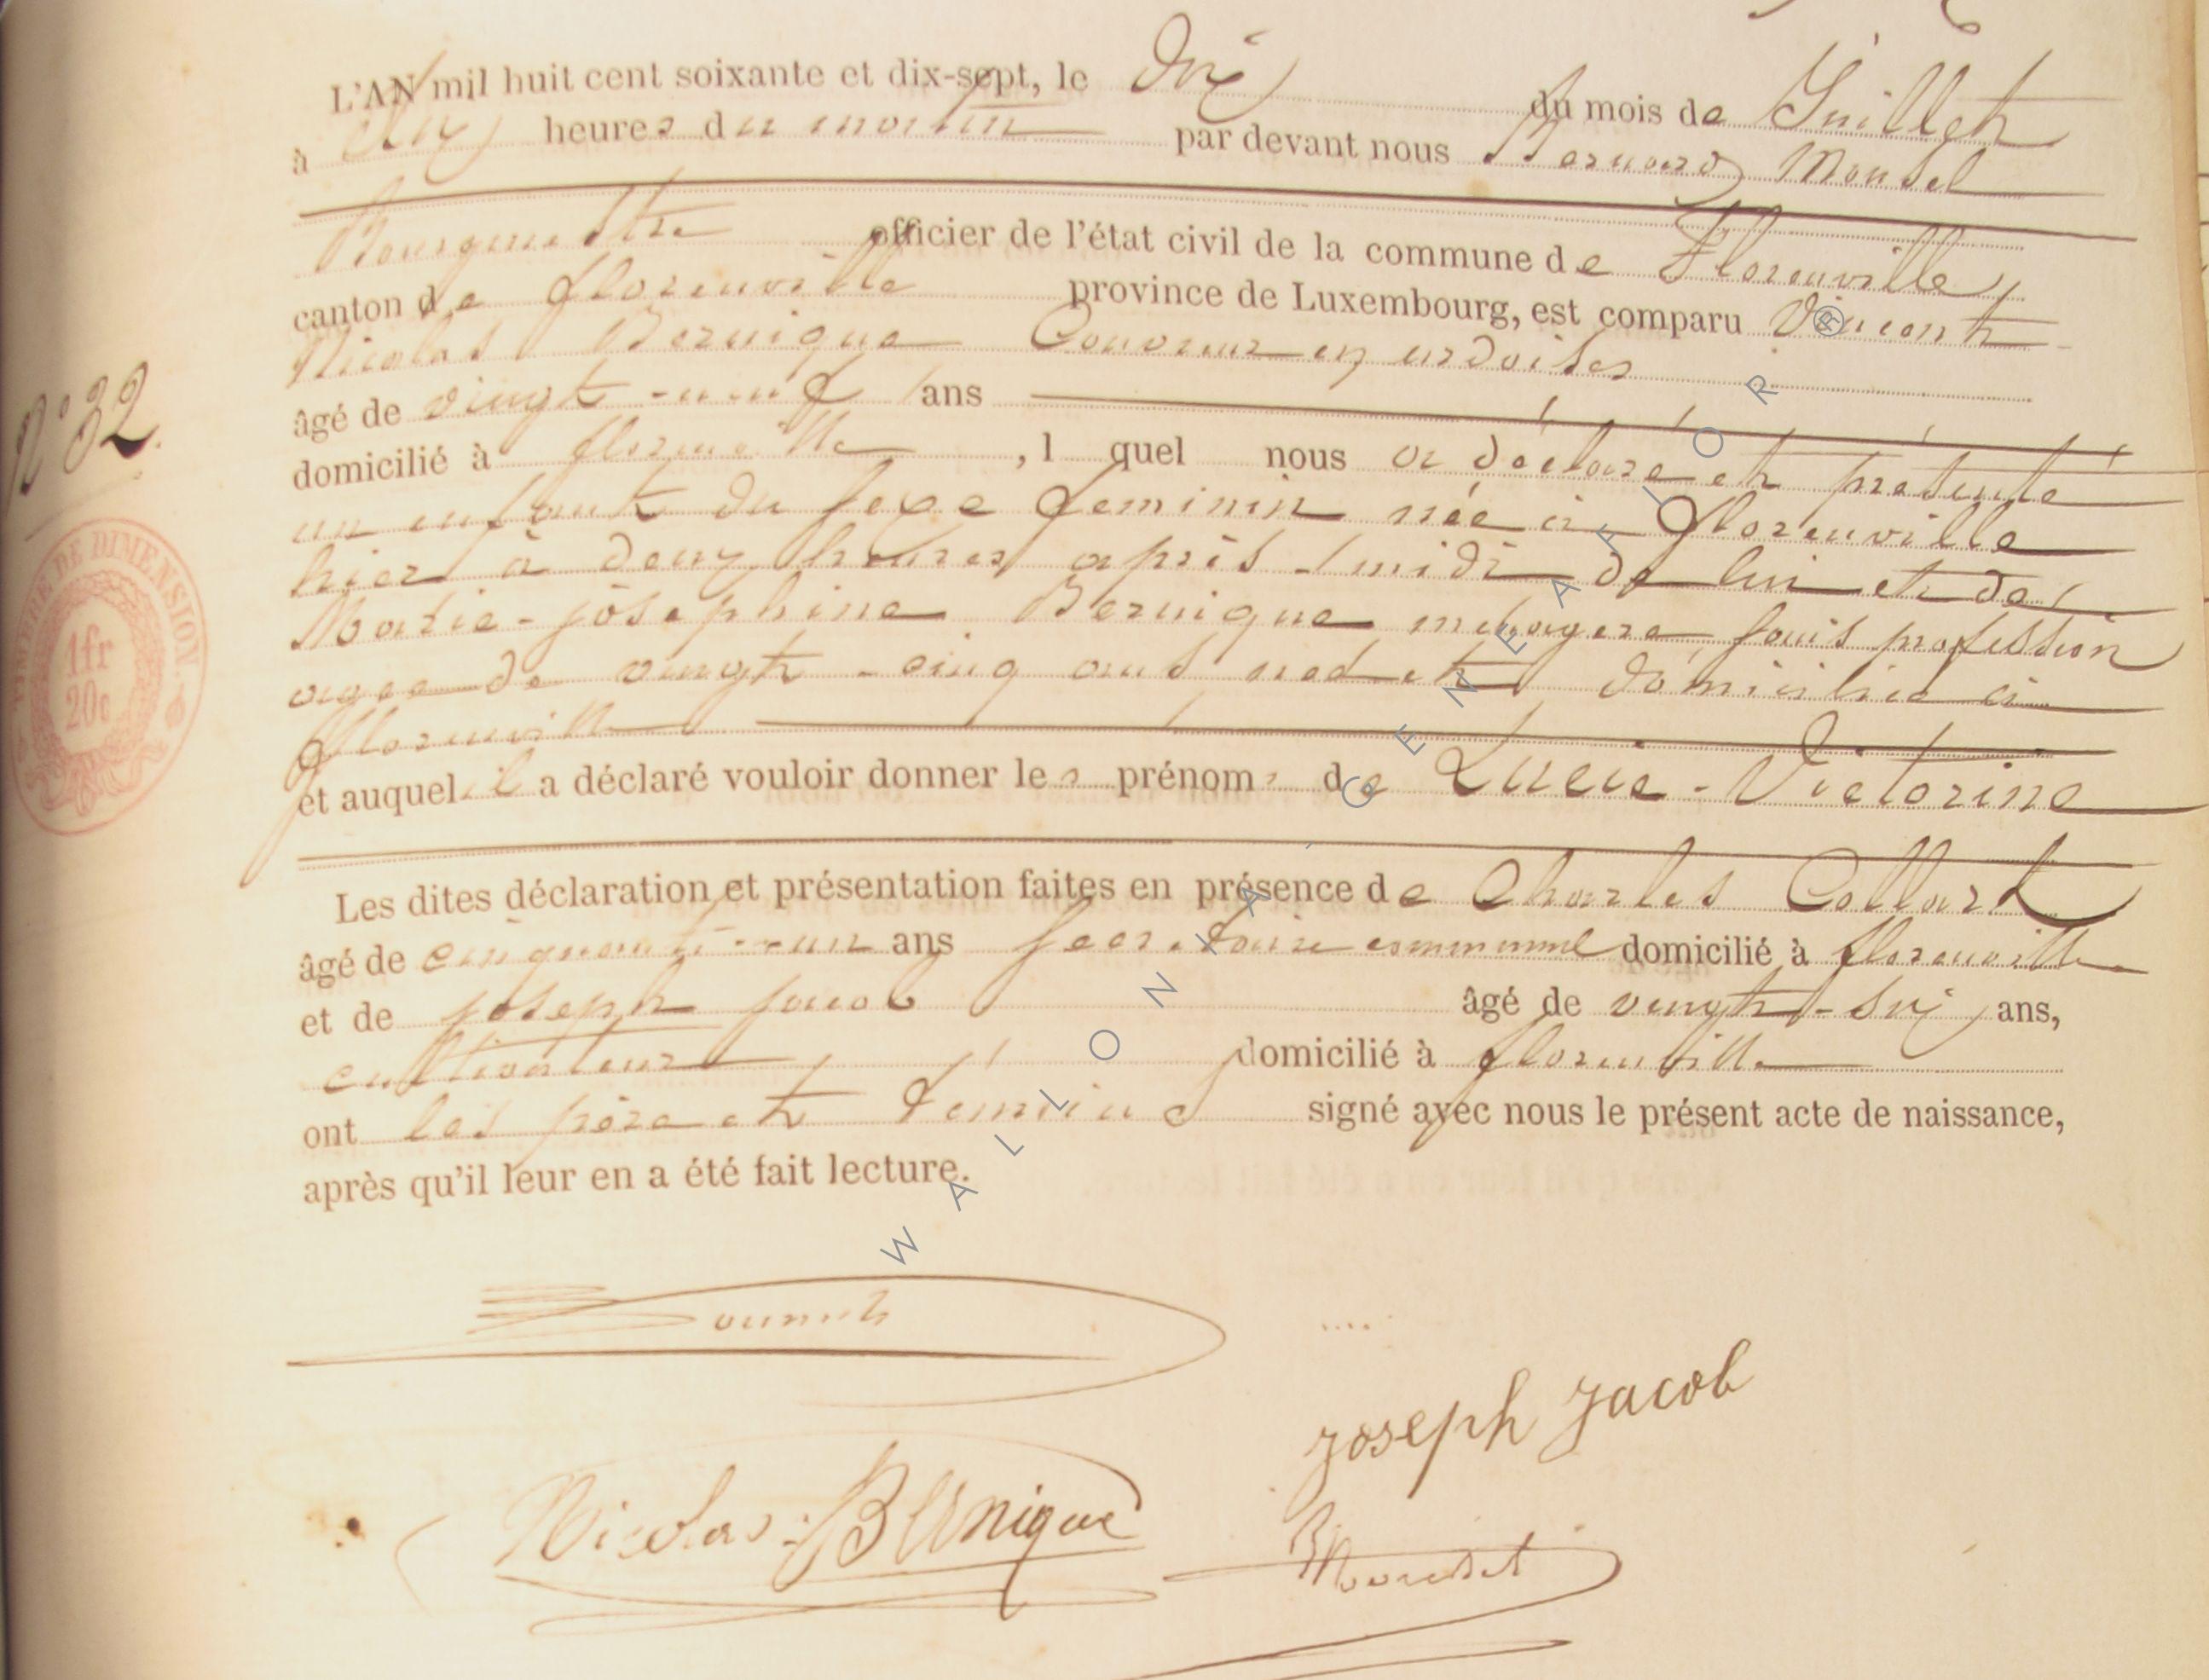 L'AN mil huit cent soixante et dix-sept, le dix du mois de Juillet
à dix heures du matin par devant nous Bernard Mousel
Bourgmestre officier de l'état civil de la commune de Florenville
canton de florenville province de Luxembourg, est comparu Vincent
Nicolas Bernique Couvreur en ardoises
âgé de vingt-neuf ans
domicilié à florenville, l quel nous a déclaré et présenté
N° 32
un enfant du sexe feminin née à florenville
hier à deux heures après-midi de lui et de
Marie-joséphine Bernique ménagère sans profession
agée de vingt-cinq ans et domiciliée à
florenville
et auquel il a déclaré vouloir donner les prénoms de Lucie-Victorine
TIMBRE DE DIMENSION.
1fr
20c
Les dites déclaration et présentation faites en présence de Charles Collart
âgé de cinquante-un ans secrétaire communal domicilié à florenville
et de joseph jacob âgé de vingt-six ans,
cultivateur domicilié à florenville
ont les père et témoins signé avec nous le présent acte de naissance,
après qu'il leur en a été fait lecture.
Nicolas Bernique
joseph jacob
WALLONIA GENEAFLOR ®